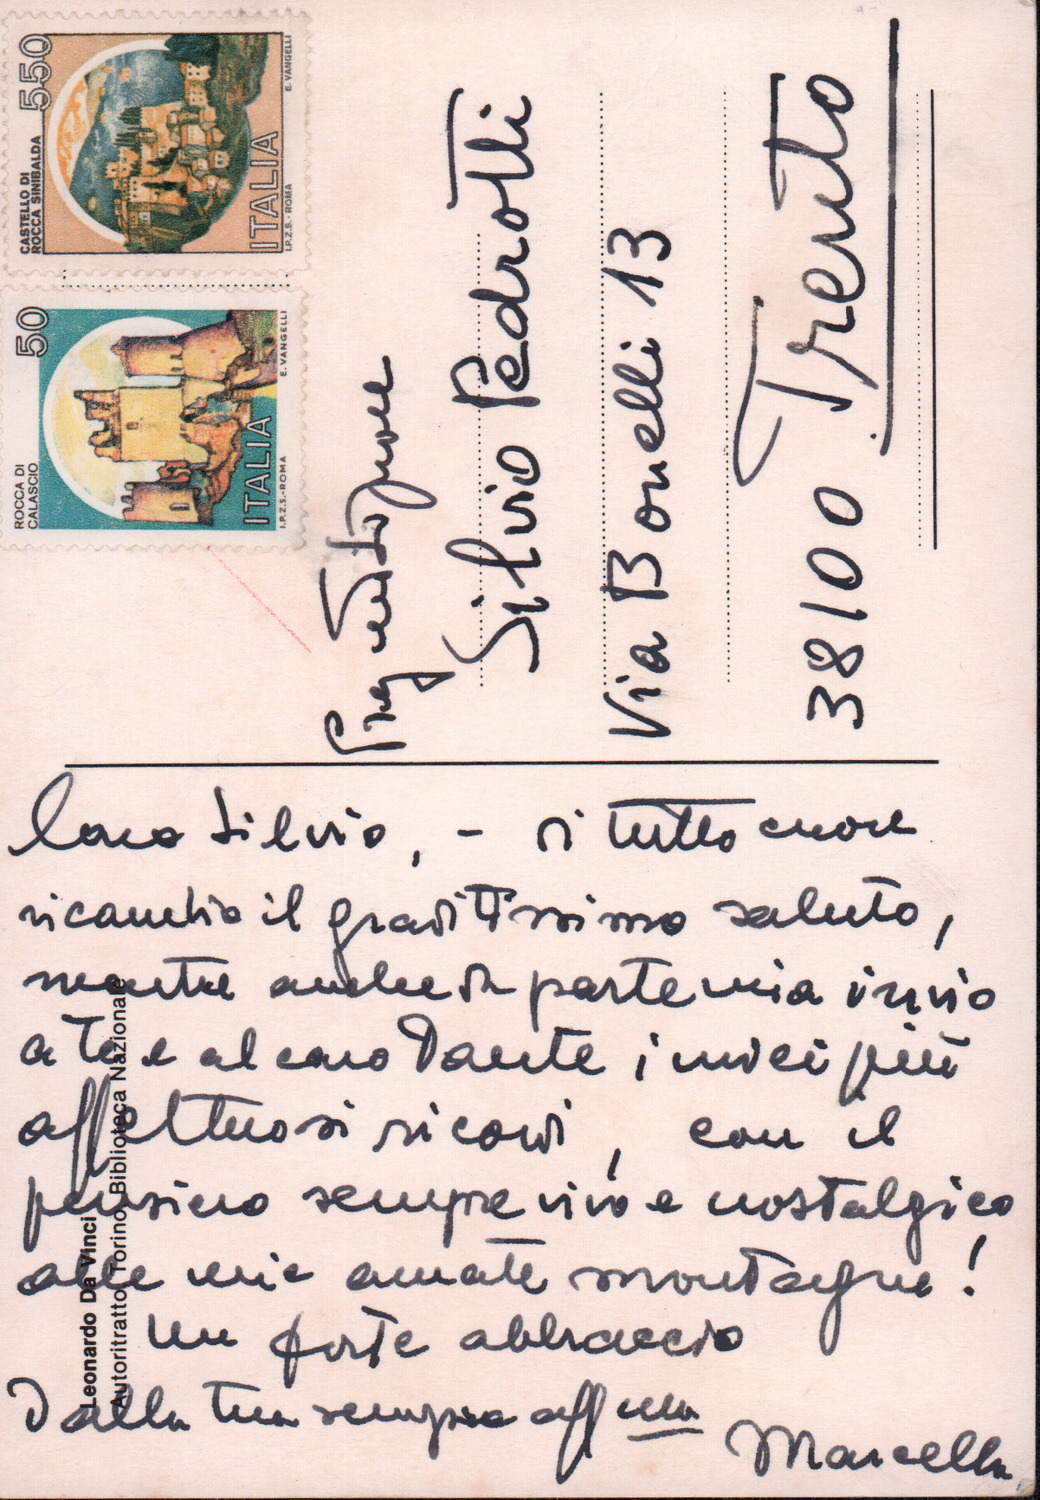 CASTELLO DI
ROCCA SINIBALDA
550
ITALIA
I.P.Z.S. - ROMA
E. VANGELLI
ROCCA DI
CALASCIO
50
ITALIA
I.P.Z.S. - ROMA
E. VANGELLI
Silvio Pedrotti
Via Bonelli 13
38100 Trento
Caro Silvio, - di tutto cuore
ricambio il graditissimo saluto,
mentre anche da parte mia invio
a te e al caro Dante i miei più
affettuosi ricordi, con il
pensiero sempre vivo e nostalgico
alle mie amate montagne!
Un forte abbraccio
Dalla tua sempre aff.ma
Marcella
Leonardo Da Vinci
Autoritratto Torino, Biblioteca Nazionale